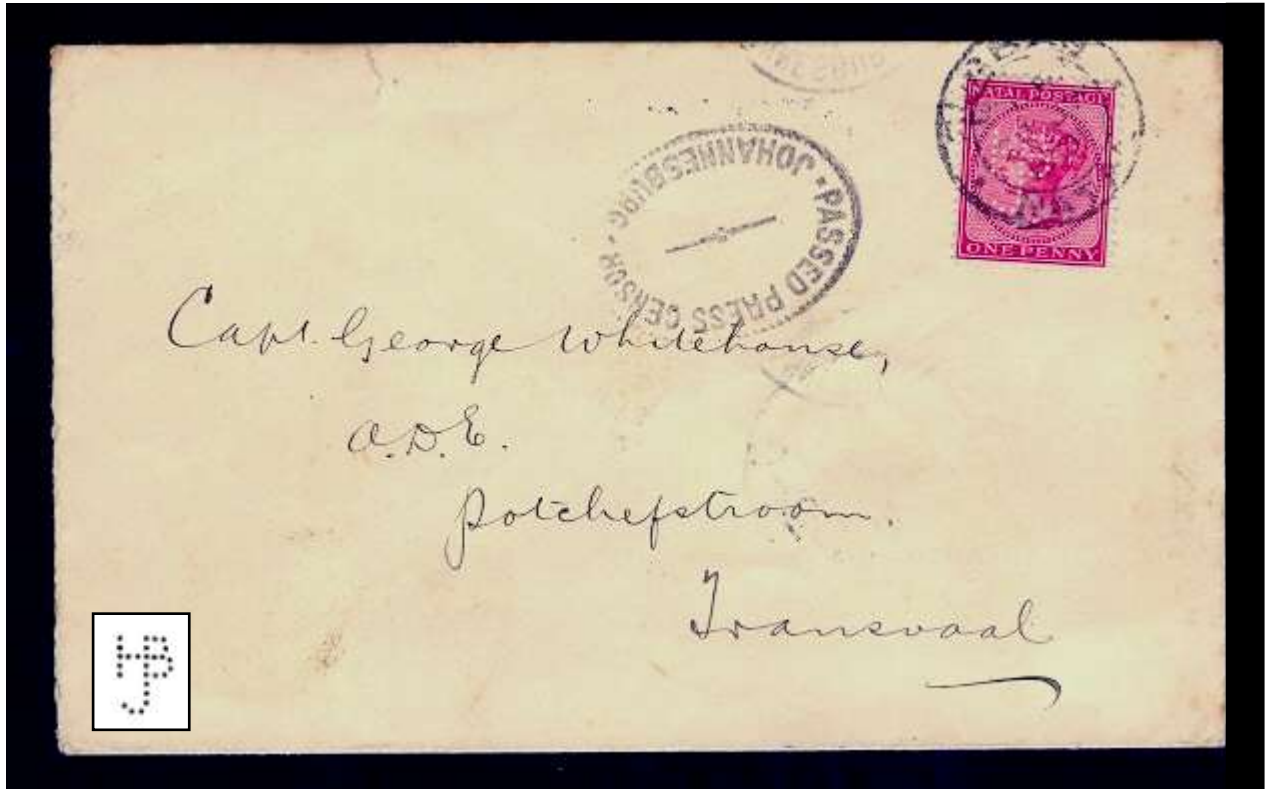 NATAL POSTAGE
ONE PENNY
PASSED PRESS CENSOR · JOHANNESBURG ·
Capt. George Whitehouse,
O.D.E.
Potchefstroom.
Transvaal
HB
J